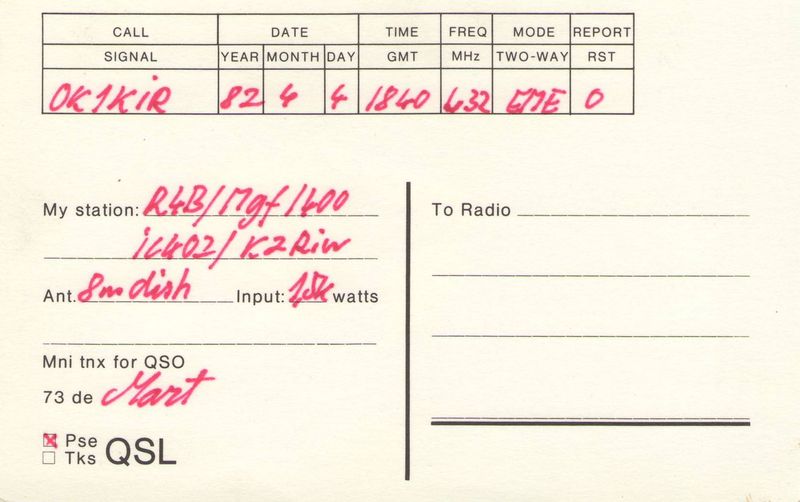 CALL DATE TIME FREQ MODE REPORT
SIGNAL YEAR MONTH DAY GMT MHz TWO-WAY RST
OK1KIR 82 4 4 1840 432 EME O
My station: R4B/Mgf1400
ic402/K2Riw
Ant. 8m dish Input: 1,5k watts
Mni tnx for QSO
73 de Mart
Pse
Tks QSL
To Radio